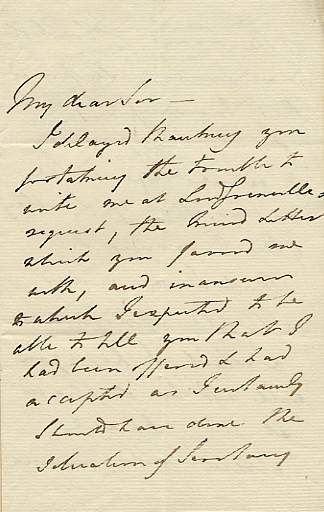 My dear Sir —
I delay'd thanking you
for taking the trouble to
write me at Lord Grenville's
request, the kind Letter
which you favord me
with, and in answer
to which I expected to be
able to tell you that I
had been offered & had
accepted as I certainly
should have done the
situation of Secretary